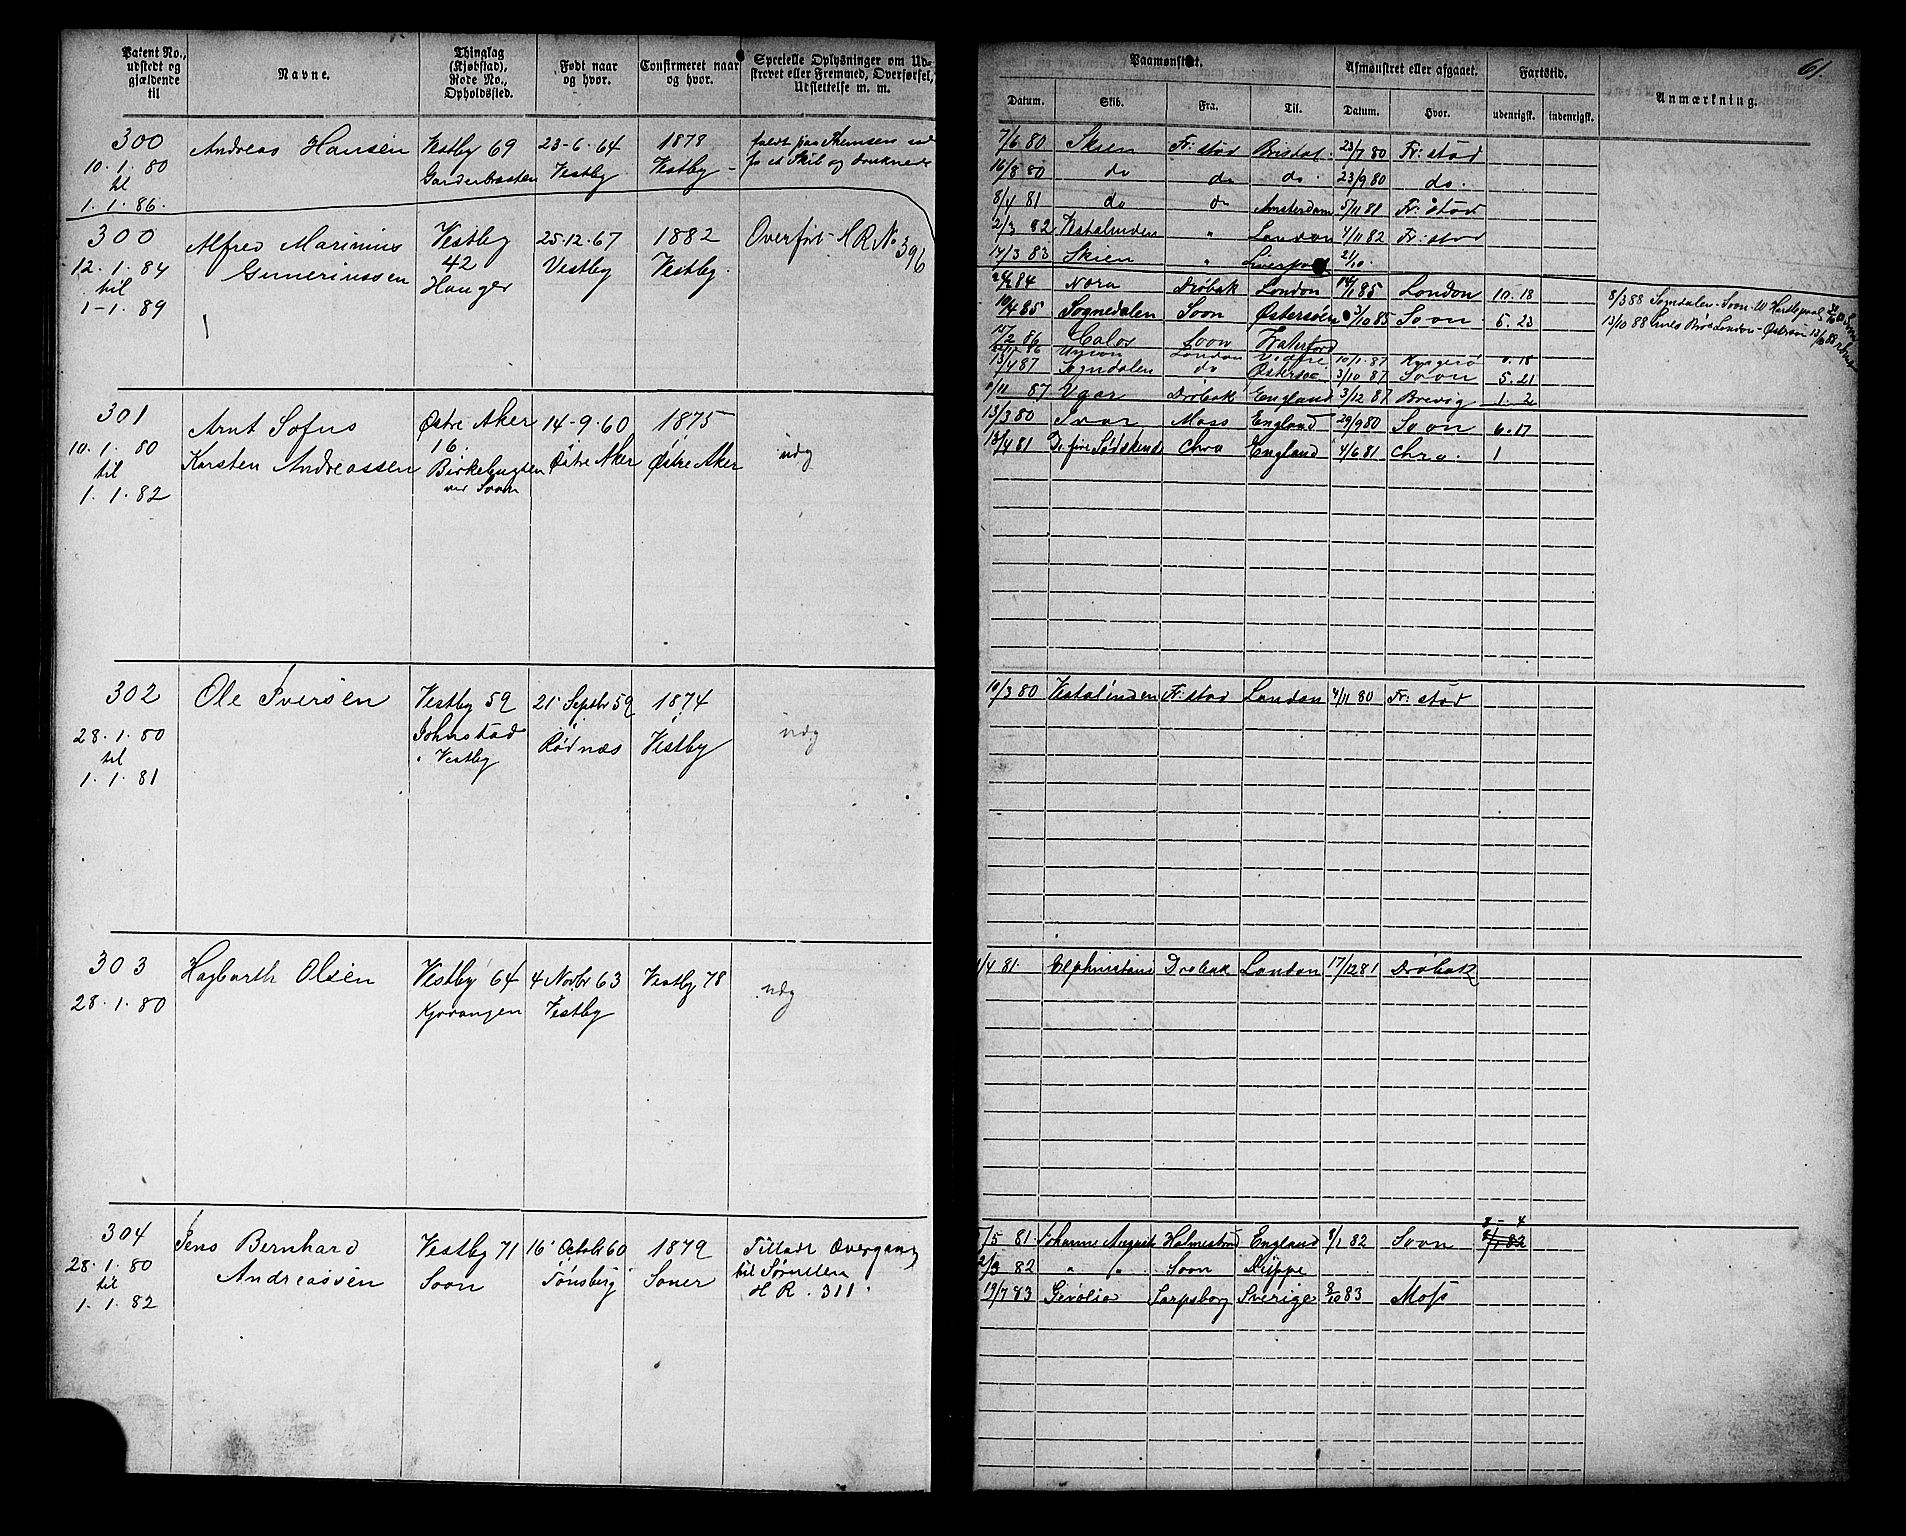 Patent No., udstedt og gjældende til
Navne.
Thinglag (Kjøbstad), Rode No., Opholdssted.
Født naar og hvor.
Confirmeret naar og hvor.
Specielle Oplysninger om Udskrevet eller Fremmed, Overførsel, Udslettelse m. m.
Paamønstret.
Afmønstret eller afgaaet.
Fartstid.
61.
Datum.
Skib.
Fra.
Til.
Datum.
Hvor.
udenrigsk.
indenrigsk.
Anmærkning.
300
10.1.80
til
1.1.86.
Andreas Hansen
Vestby 69
23-6.64
Vestby
1878
Vestby -
faldt paa Themsen
fra et Skib og druknede
7/6 80 Skien Fr:stad Bristol 23/7 80 Fr:stad
16/8 80 do do do. 23/9 80 do.
8/4 81 do do Amsterdam 5/11 81 Fr:stad
2/3 82 Vestalinden " London 4/11 82 Fr:stad
17/3 83 Skien " Liverpool 2/10.
300
12.1.84
til
1-1.89
Alfred Marinius
Guneriussen
Vestby
42
Hauger
25-12.67
Vestby
1882
Vestby.
Overført H R No 396
84 Nora Drøbak London 85 London 10.18
10/4 85 Sogndalen Soon Østersøen 3/10 85 Soon 5.23
86 Calos Soon Waterford
London
13/4 87 Sogndalen do Østersøe 3/10 87 Soon 5.21
87 Ygar Drøbak England 3/12 87 Brevig 1.2
8/3 88 Sogndalen-Soon-W Hartlepool
13/10 88 London-Østersøen
301
10.1.80
til
1.1.82
Arnt Sofus
Karsten Andreassen
Østre Aker
16.
Birkebugten
ved Soon
14-9.60
Østre Aker
1875
Østre Aker
udg
13/3 80 Ivar Moss England 29/9 80 Soon 6.17
13/4 81 De fire Sødskende Chra England 4/6 81 Chra. 1
302
28.1.80
til
1.1.81
Ole Iversen
Vestby 59
Johnstad
i Vestby
21 Septbr 59
Rødnæs
1874
Vestby
udg
10/3 80 Vestalinden Fr:stad London 4/11 80 Fr:stad
303
28.1.80
Hagbarth Olsen
Vestby 64
4 Novbr 63
Vestby
Vestby 78
udg
1/4 81. Elphinstone Drøbak London 17/12 81 Drøbak
304
28.1.80
til
1.1.82
Jens Bernhard
Andreassen
Vestby 71
Soon
16 Octobr 60
Tønsberg
1879
Soner
Tilladt Overgang
til Sørullen
H R. 311.
/5 81. Johanne Auguste Holmestrand England 8/1 82 Soon 8-4
8/1 82
2/3 82 " " Soon Dieppe
19/7 83 Gevolia Sarpsborg Sverige 2/10 83 Moss